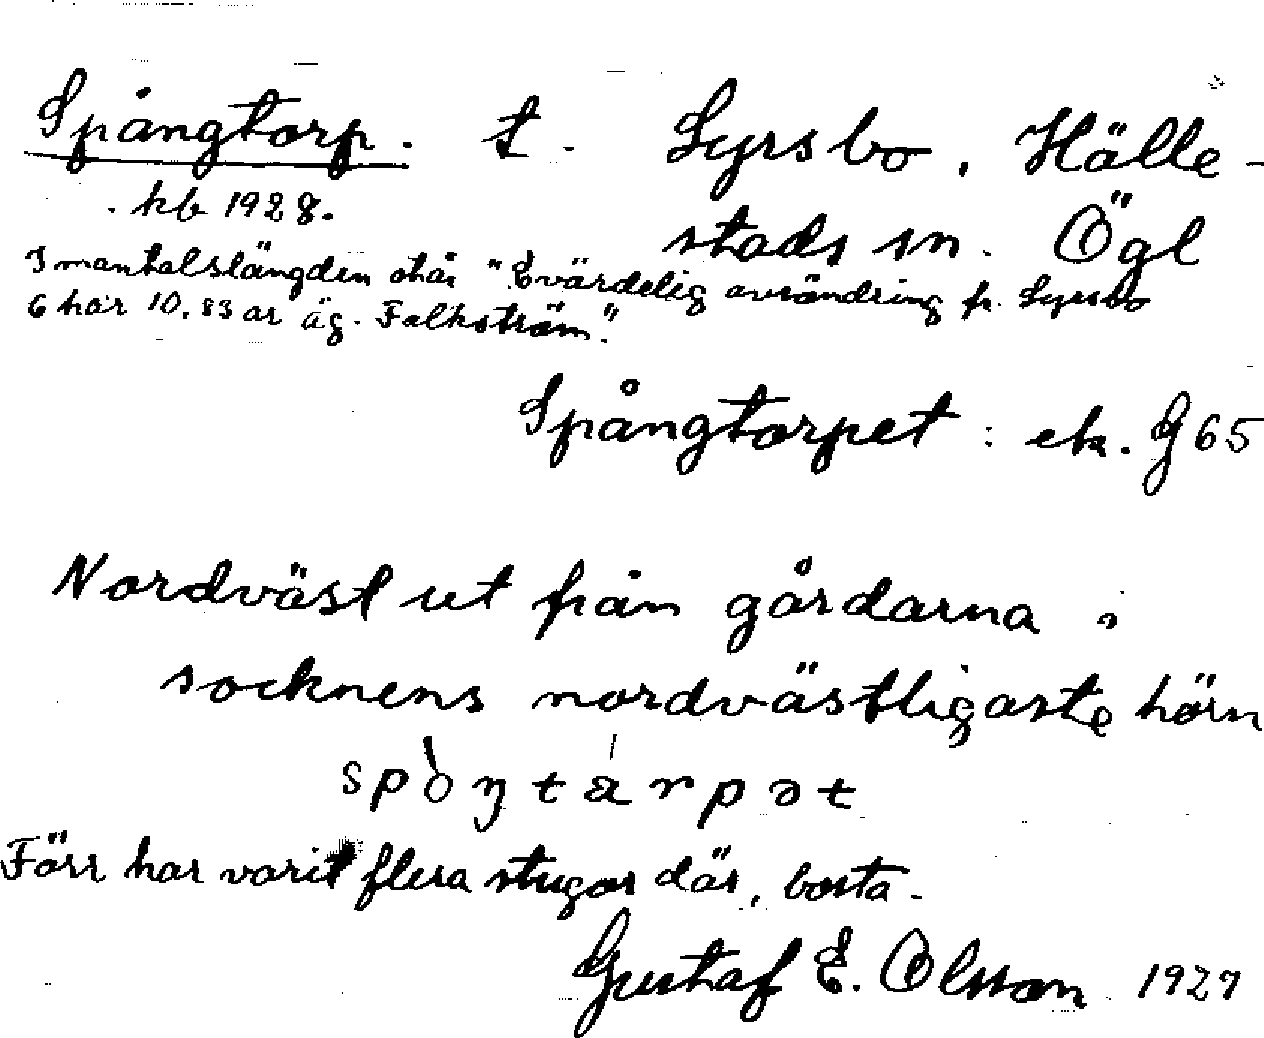 Spångtorp. t. Lyrsbo, Hälle-
hb 1928. stads sn. Ögl
I mantalslängden står "Evärdelig avsöndring fr. Lyrsbo
6 har 10,83 ar äg. Falkström."
Spångtorpet : ek. G 65
Nordväst ut från gårdarna i
socknens nordvästligaste hörn
spòŋtárpət
Förr har varit flera stugor där, borta.
Gustaf E. Olsson 1927